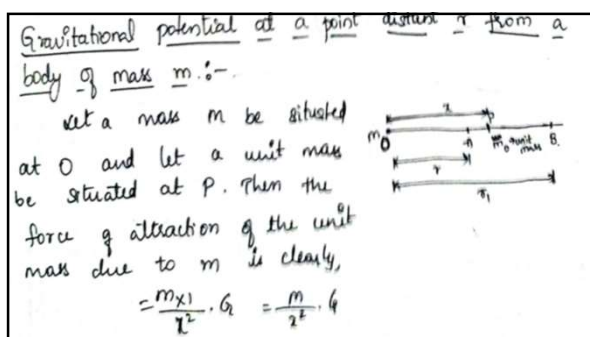 Gravitational potential at a point distant r from a
body of mass m :-
Let a mass m be situated
at O and let a unit mass
be situated at P. Then the
force of attraction of the unit
mass due to m is clearly,
= m×1/x² . G = m/x² . G
x
m O P B
r
unit mass
r₁